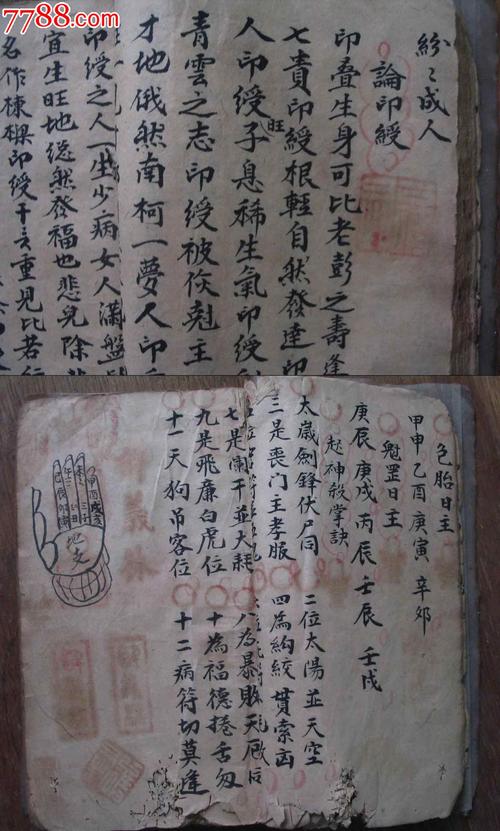 7788.com
紛〻成人
論印綬
印叠生身可比老彭之壽逢
七責印綬根輕自然發達印
人印綬旺子息稀生氣印綬
青雲之志印綬被傷剋主
才地俄然南柯一夢人印
印綬之人一生少病女人滿盤
宜生旺地縱然發福也悲兒除
名作棟樑印綬干支重見比若行
色胎日主
甲申 乙酉 庚寅 辛卯
魁罡日主
庚辰 庚戌 丙辰 壬辰 壬戌
起神殺掌訣
太歲劍鋒伏尸同 二位太陽並天空
三是喪門主孝服 四為絢絞貫索凶
七是闌干並大耗 八為暴敗天厄
九是飛廉白虎位 十為福德捲舌
十一天狗吊客位 十二病符切莫逢
地支